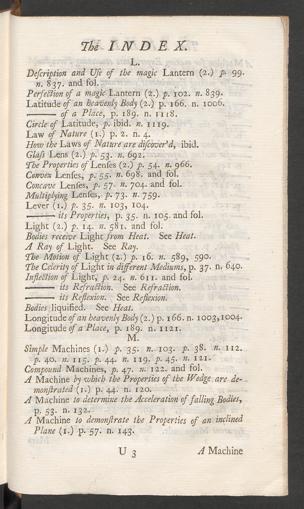 The INDEX.
L.
Description and Use of the magic Lantern (2.) p. 99.
n. 837. and fol.
Perfection of a magic Lantern (2.) p. 102. n. 839.
Latitude of an heavenly Body (2.) p. 166. n. 1006.
——— of a Place, p. 189. n. 1118.
Circle of Latitude, p. ibid. n. 1119.
Law of Nature (1.) p. 2. n. 4.
How the Laws of Nature are discover'd, ibid.
Glass Lens (2.) p. 53. n. 692.
The Properties of Lenses (2.) p. 54. n. 966.
Convex Lenses, p. 55. n. 698. and fol.
Concave Lenses, p. 57. n. 704. and fol.
Multiplying Lenses, p. 73. n. 759.
Lever (1.) p. 35. n. 103, 104.
——— its Properties, p. 35. n. 105. and fol.
Light (2.) p. 14. n. 581. and fol.
Bodies receive Light from Heat. See Heat.
A Ray of Light. See Ray.
The Motion of Light (2.) p. 16. n. 589, 590.
The Celerity of Light in different Mediums, p. 37. n. 640.
Inflection of Light, p. 24. n. 611. and fol.
——— its Refraction. See Refraction.
——— its Reflexion. See Reflexion.
Bodies liquified. See Heat.
Longitude of an heavenly Body (2.) p. 166. n. 1003, 1004.
Longitude of a Place, p. 189. n. 1121.
M.
Simple Machines (1.) p. 35. n. 103. p. 38. n. 112.
p. 40. n. 115. p. 44. n. 119. p. 45. n. 121.
Compound Machines, p. 47. n. 122. and fol.
A Machine by which the Properties of the Wedge are de-
monstrated (1.) p. 44. n. 120.
A Machine to determine the Acceleration of falling Bodies,
p. 53. n. 132.
A Machine to demonstrate the Properties of an inclined
Plane (1.) p. 57. n. 143.
U 3
A Machine